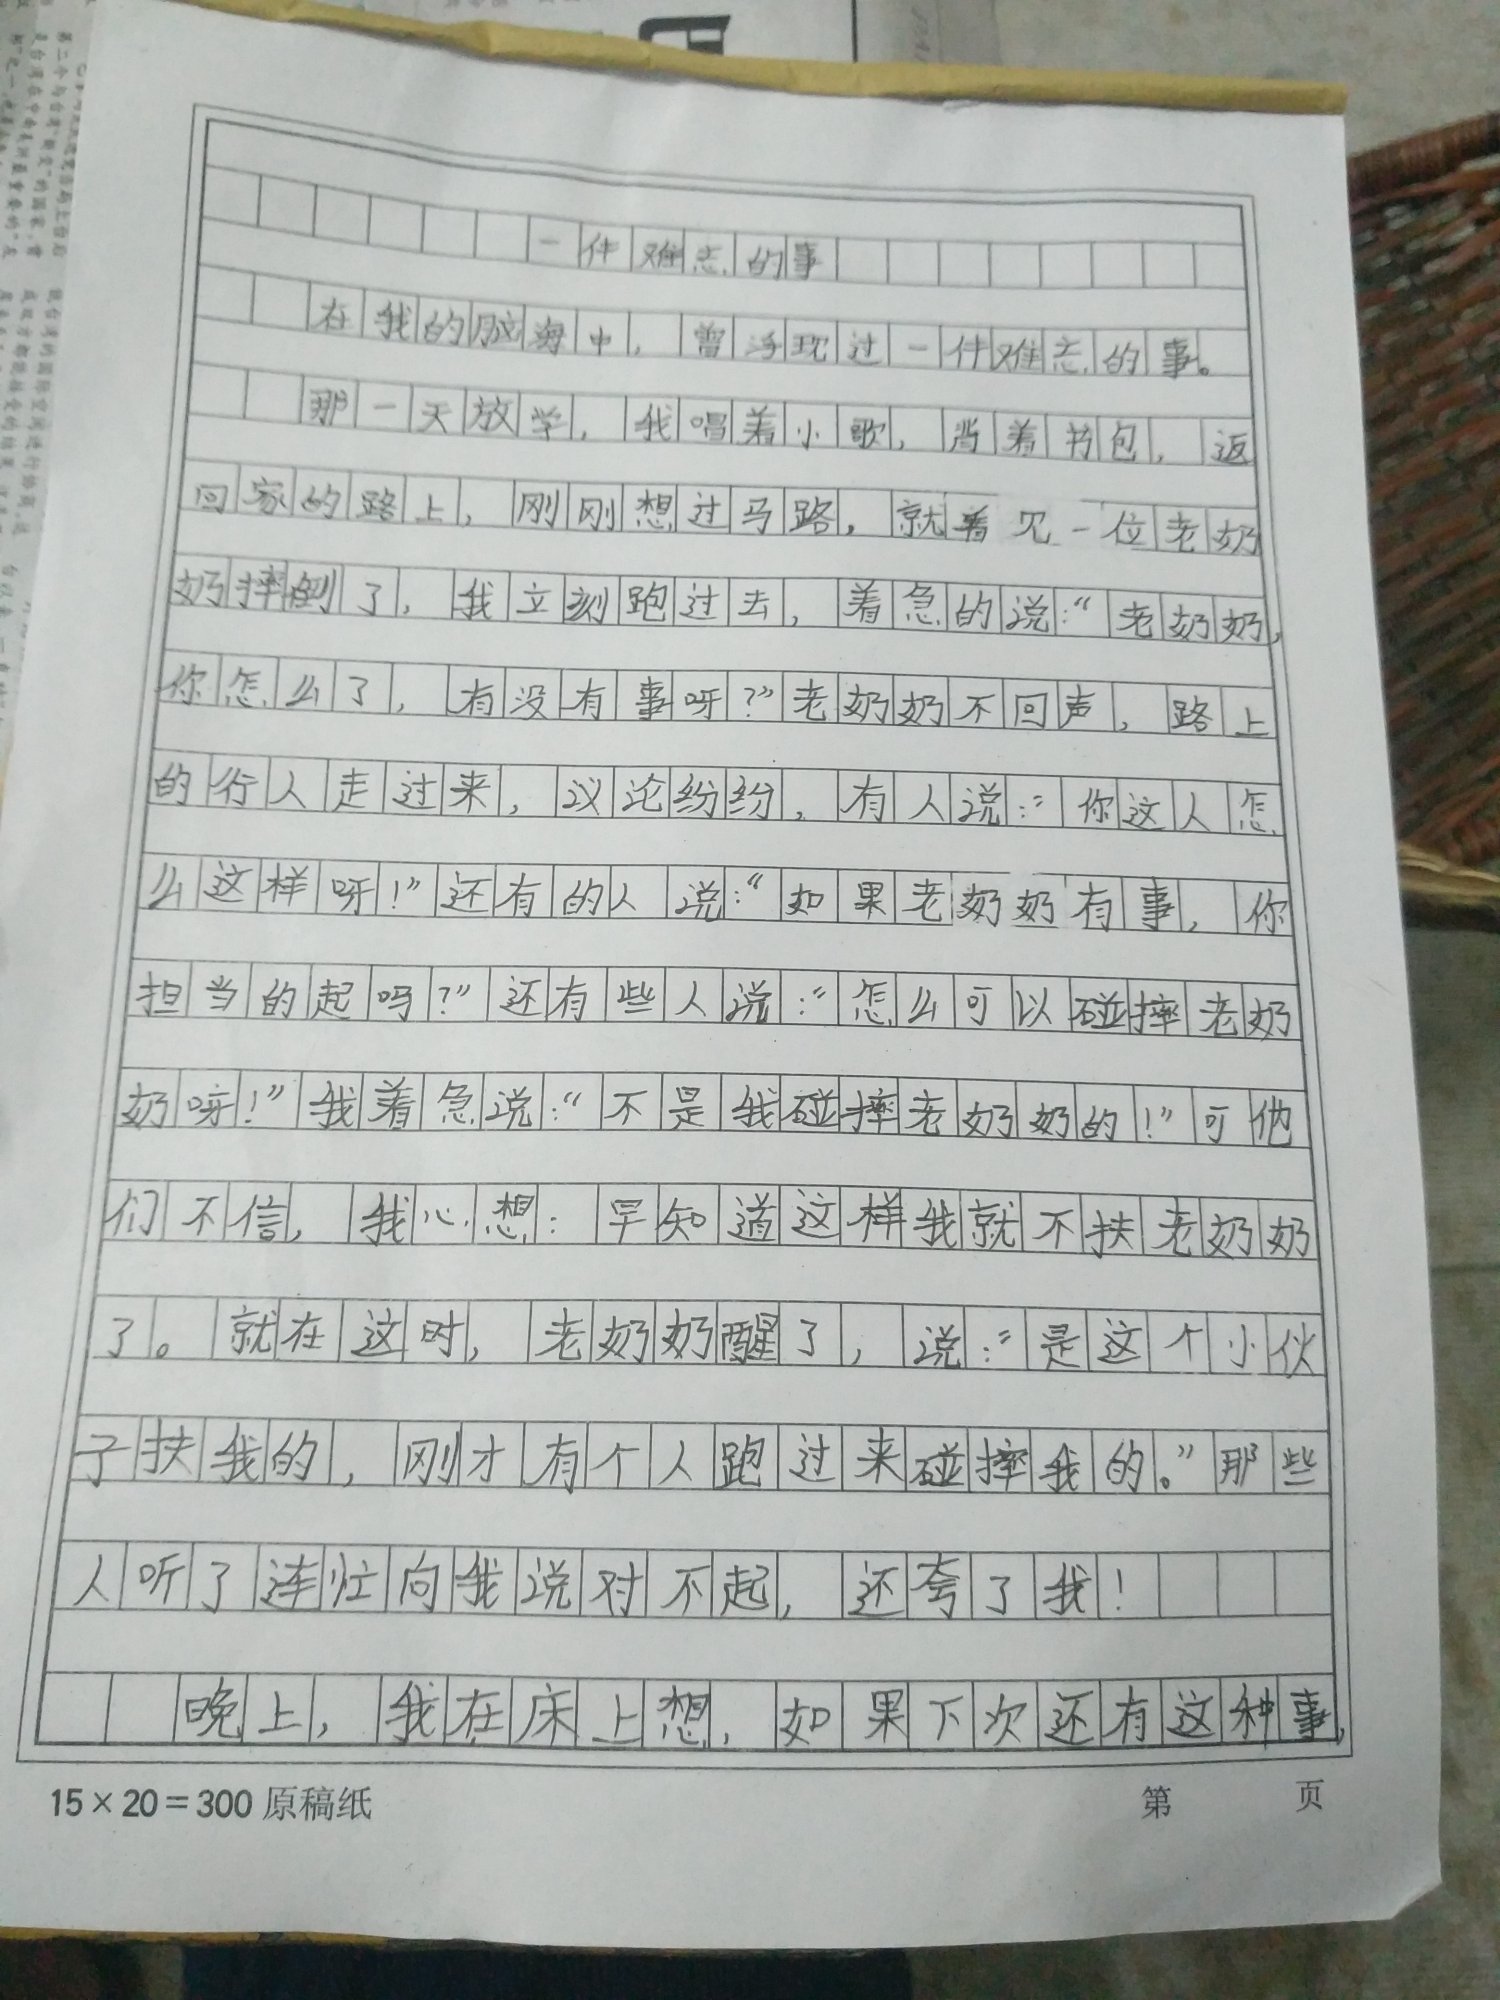 一件难忘的事
在我的脑海中，曾浮现过一件难忘的事。
那一天放学，我唱着小歌，背着书包，返
回家的路上，刚刚想过马路，就看见一位老奶
奶摔倒了，我立刻跑过去，着急的说：“老奶奶，
你怎么了，有没有事呀？”老奶奶不回声，路上
的行人走过来，议论纷纷，有人说：“你这人怎
么这样呀！”还有的人说：“如果老奶奶有事，你
担当的起吗？”还有些人说：“怎么可以碰摔老奶
奶呀！”我着急说：“不是我碰摔老奶奶的！”可他
们不信，我心想：早知道这样我就不扶老奶奶
了。就在这时，老奶奶醒了，说：“是这个小伙
子扶我的，刚才有个人跑过来碰摔我的。”那些
人听了连忙向我说对不起，还夸了我！
晚上，我在床上想，如果下次还有这种事，
15×20=300 原稿纸 第 页